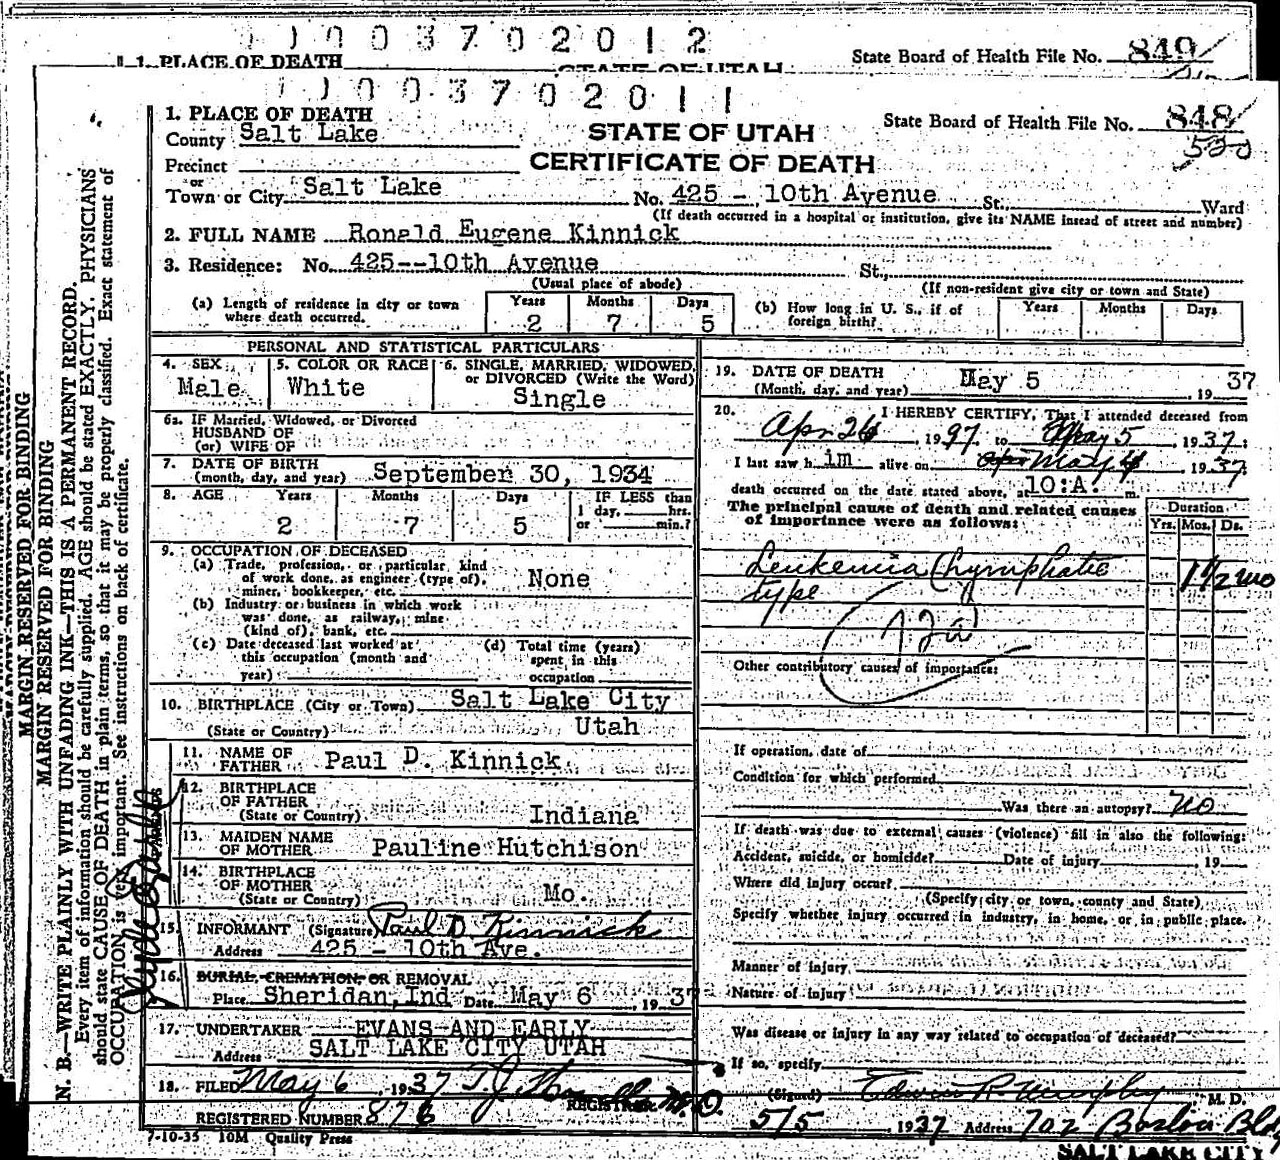 1 0 0 3 7 0 2 0 1 2
State Board of Health File No. 849
1. PLACE OF DEATH STATE OF UTAH
1 0 0 3 7 0 2 0 1 1
1. PLACE OF DEATH
County Salt Lake
STATE OF UTAH
State Board of Health File No. 848
CERTIFICATE OF DEATH
520
Precinct
or
Town or City Salt Lake No. 425 - 10th Avenue St. Ward
(If death occurred in a hospital or institution, give its NAME insead of street and number)
2. FULL NAME Ronald Eugene Kinnick
3. Residence: No. 425--10th Avenue St.,
(Usual place of abode) (If non-resident give city or town and State)
(a) Length of residence in city or town where death occurred. Years 2 Months 7 Days 5
(b) How long in U. S., if of foreign birth? Years Months Days
PERSONAL AND STATISTICAL PARTICULARS
4. SEX Male
5. COLOR OR RACE White
6. SINGLE, MARRIED, WIDOWED, or DIVORCED (Write the Word) Single
6a. IF Married, Widowed, or Divorced
HUSBAND OF
(or) WIFE OF
7. DATE OF BIRTH
(month, day, and year) September 30, 1934
8. AGE Years 2 Months 7 Days 5 IF LESS than 1 day, hrs. or min.?
9. OCCUPATION OF DECEASED
(a) Trade, profession, or particular kind
of work done, as engineer (type of), None
miner, bookkeeper, etc.
(b) Industry or business in which work
was done, as railway, mine
(kind of), bank, etc.
(c) Date deceased last worked at
this occupation (month and
year)
(d) Total time (years)
spent in this
occupation
10. BIRTHPLACE (City or Town) Salt Lake City
(State or Country) Utah
11. NAME OF
FATHER Paul D. Kinnick
12. BIRTHPLACE
OF FATHER
(State or Country) Indiana
13. MAIDEN NAME
OF MOTHER Pauline Hutchison
14. BIRTHPLACE
OF MOTHER
(State or Country) Mo.
15. INFORMANT (Signature) Paul D Kinnick
Address 425 - 10th Ave.
16. BURIAL, CREMATION OR REMOVAL
Place Sheridan, Ind Date May 6, 1937
17. UNDERTAKER EVANS AND EARLY
Address SALT LAKE CITY UTAH
18. FILED May 6, 1937
REGISTRAR
REGISTERED NUMBER 876
7-10-35 10M Quality Press
19. DATE OF DEATH
(Month, day, and year) May 5, 1937
20. I HEREBY CERTIFY, That I attended deceased from
Apr 26, 1937 to May 5, 1937;
I last saw him alive on May 4, 1937;
death occurred on the date stated above, at 10:A. m.
The principal cause of death and related causes
of importance were as follows:
Duration
Yrs. Mos. Ds.
Leukemia (Lymphatic 1 1/2 mo
type
72a
Other contributory causes of importance:
If operation, date of
Condition for which performed
Was there an autopsy? No
If death was due to external causes (violence) fill in also the following:
Accident, suicide, or homicide? Date of injury , 19
Where did injury occur?
(Specify city or town, county and State)
Specify whether injury occurred in industry, in home, or in public place.
Manner of injury
Nature of injury
Was disease or injury in any way related to occupation of deceased?
If so, specify
(Signed) Edwin R. Murphy M. D.
5/5, 1937 Address 702 Boston Bld
SALT LAKE CITY
MARGIN RESERVED FOR BINDING
MARGIN RESERVED FOR BINDING
N. B.—WRITE PLAINLY WITH UNFADING INK—THIS IS A PERMANENT RECORD.
Every item of information should be carefully supplied. AGE should be stated EXACTLY. PHYSICIANS
should state CAUSE OF DEATH in plain terms, so that it may be properly classified. Exact statement of
OCCUPATION is very important. See instructions on back of certificate.